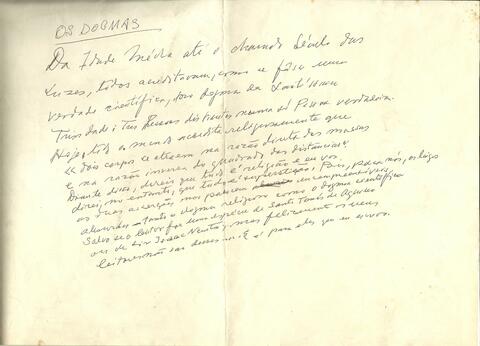 OS DOGMAS
Da Idade Média até o chamado Século das
Luzes, todos acreditavam, como se fôra uma
verdade científica, no dogma da Santíssima
Trindade: Três Pessoas distintas numa só Pessoa verdadeira.
Hoje, todo o mundo acredita religiosamente que
"dois corpos se atraem na razão direta das massas
e na razão inversa do quadrado das distâncias".
Diante disto, direis que tudo é religião e eu vos
direi, no entanto, que tudo é superstição. Pois, para nós, os leigos
as duas asserções nos parecem incompreensíveis,
absurdas tanto o dogma religioso como o dogma científico
Salvo se o leitor for uma espécie de Santo Tomás de Aquino
ou de Sir Isaac Newton, mas felizmente os meus
leitores não são desses e é para eles que eu escrevo.